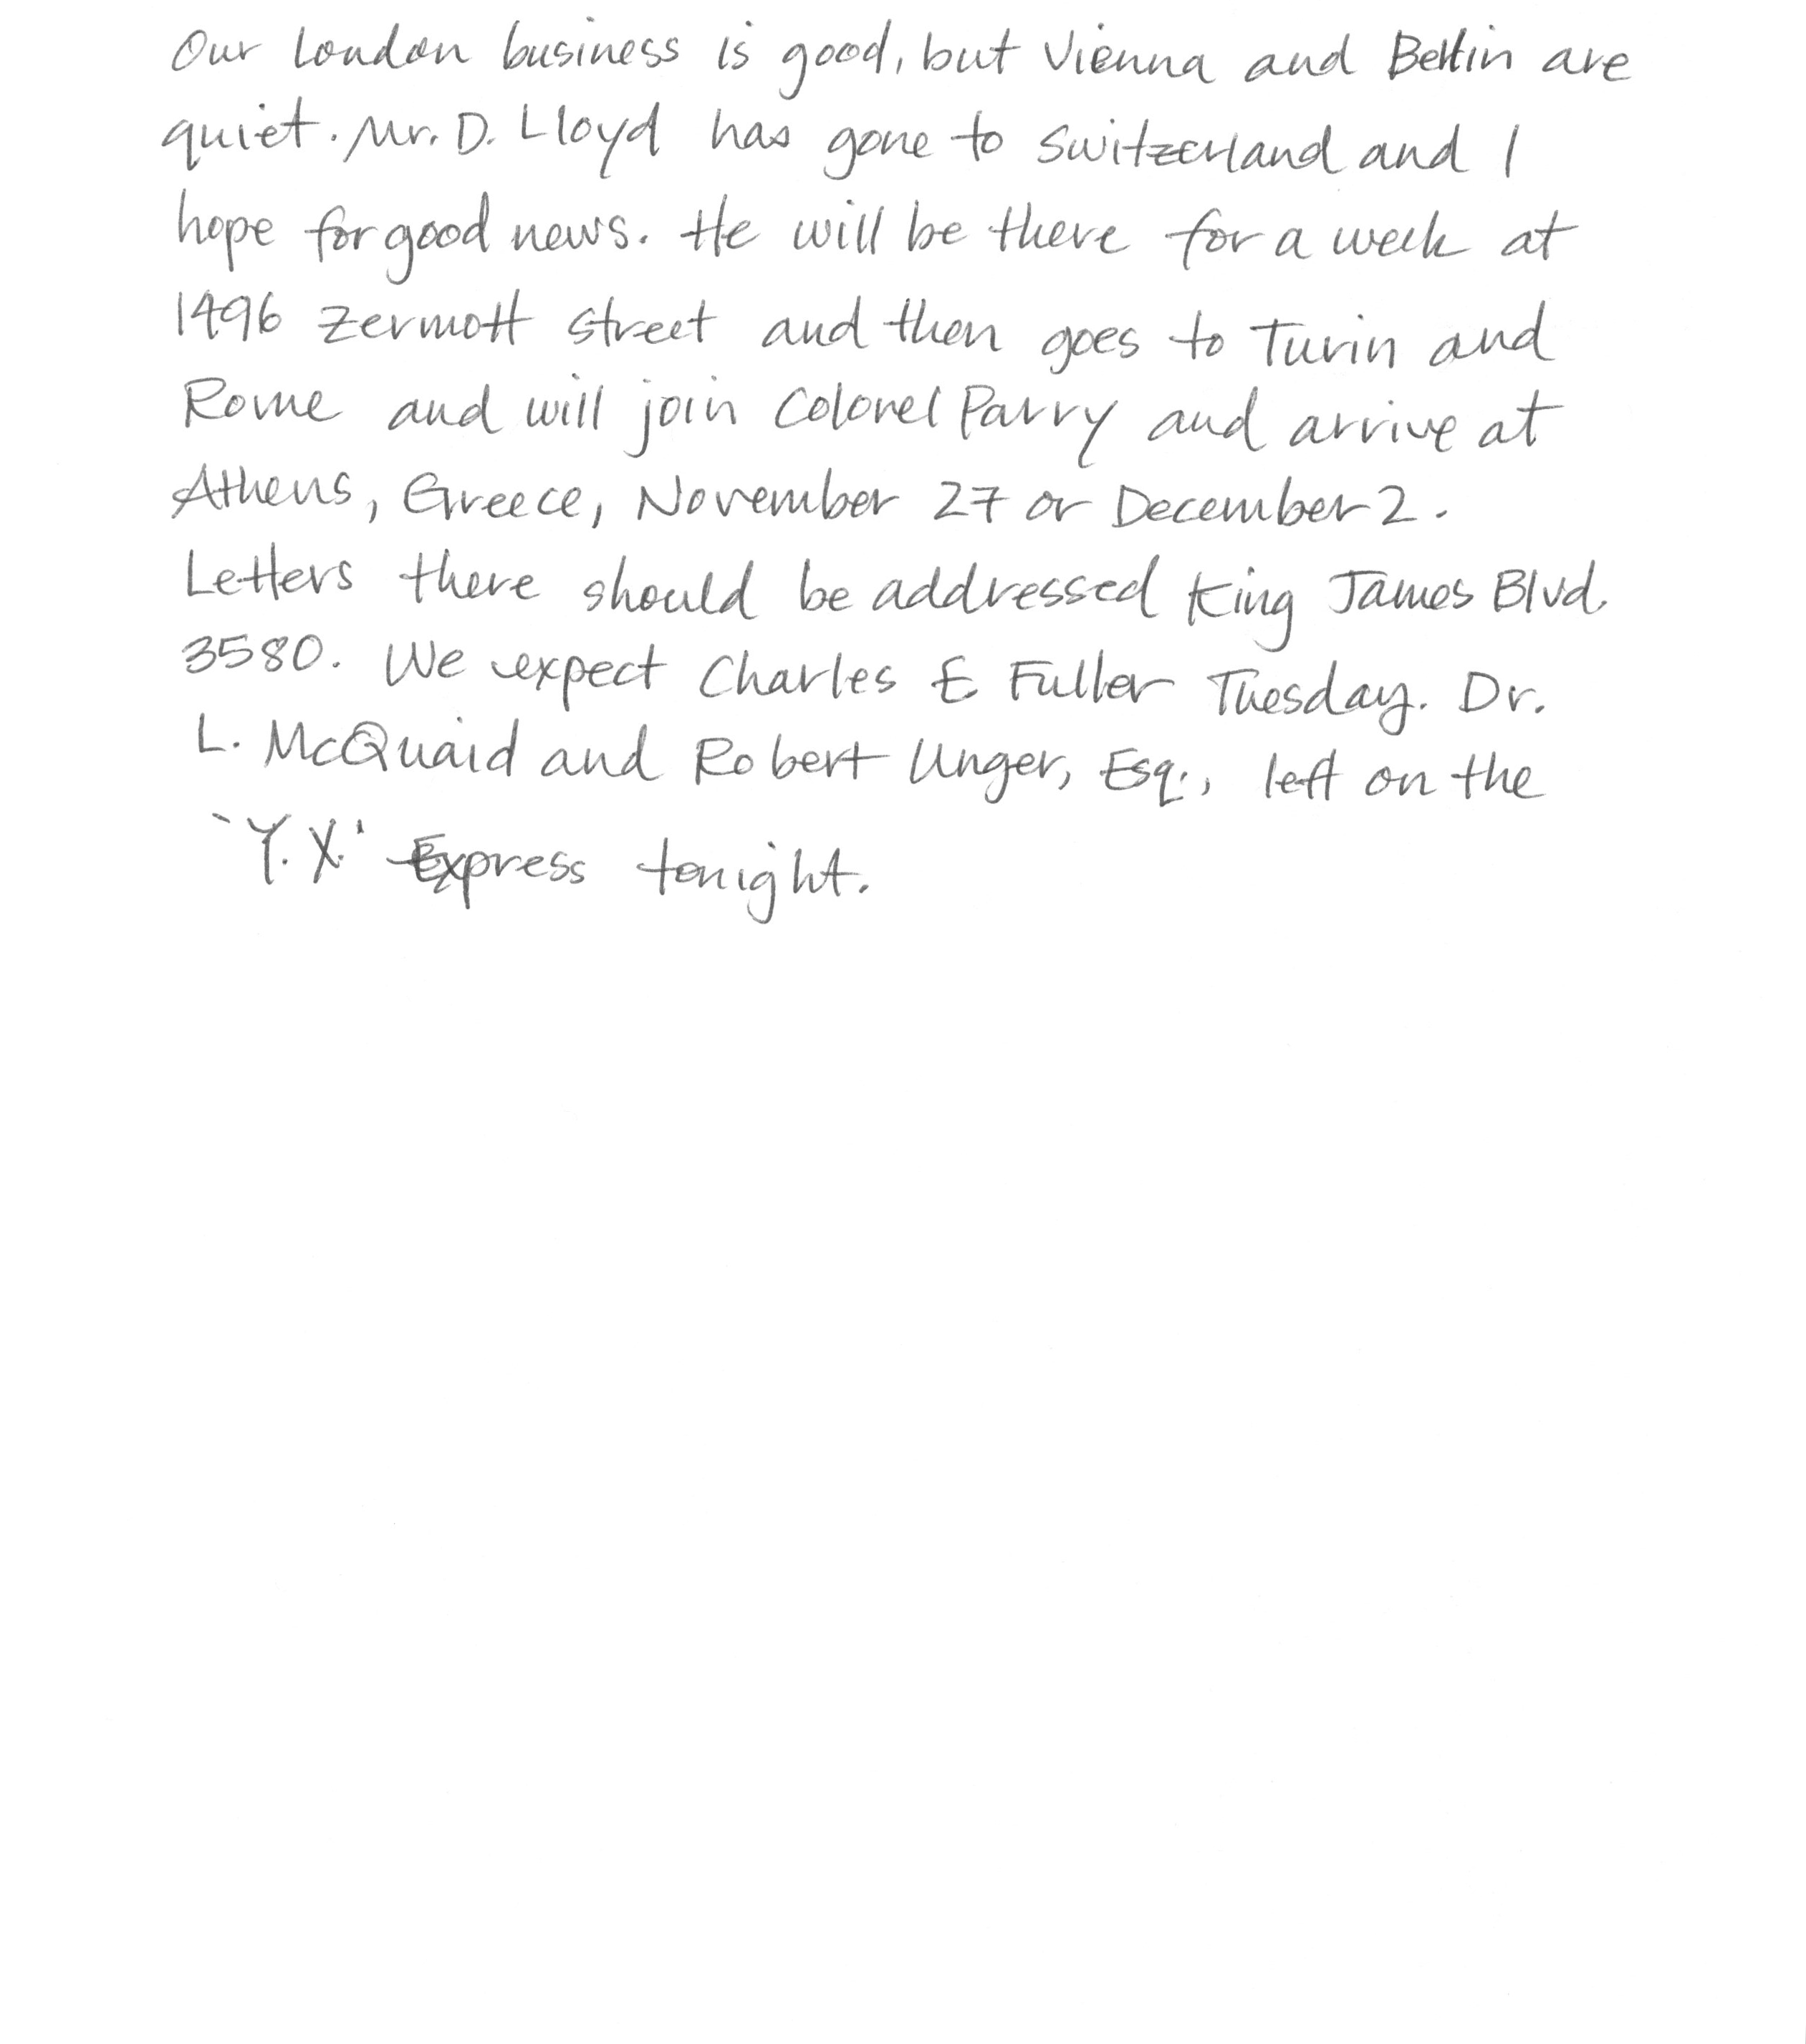 Our London business is good, but Vienna and Berlin are
quiet. Mr. D. Lloyd has gone to Switzerland and I
hope for good news. He will be there for a week at
1496 Zermott Street and then goes to Turin and
Rome and will join Colonel Parry and arrive at
Athens, Greece, November 27 or December 2.
Letters there should be addressed King James Blvd.
3580. We expect Charles E Fuller Tuesday. Dr.
L. McQuaid and Robert Unger, Esq., left on the
`Y.X.' Express tonight.